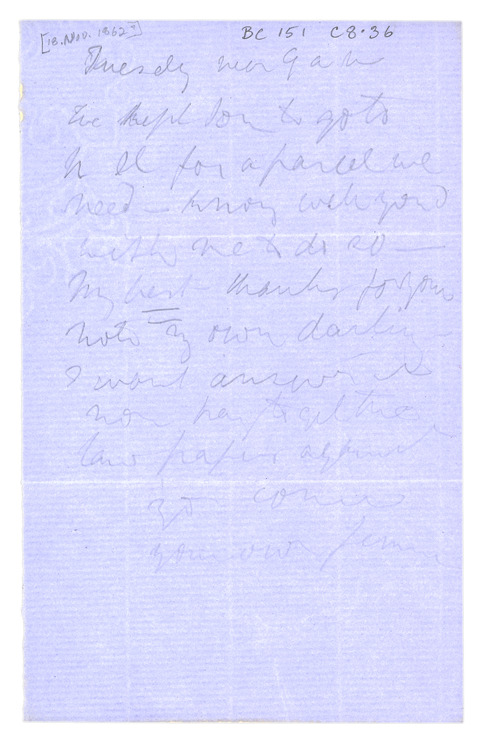 [18. Nov. 1862?]
BC 151 C8.36
Tuesday near 9 a m
I've kept Tom to go to
for a parcel we
need - know well you'd
wish me to do so —
My best thanks for your
note my own darling -
I wont answer it
now try to get these
law papers against
you come
your own